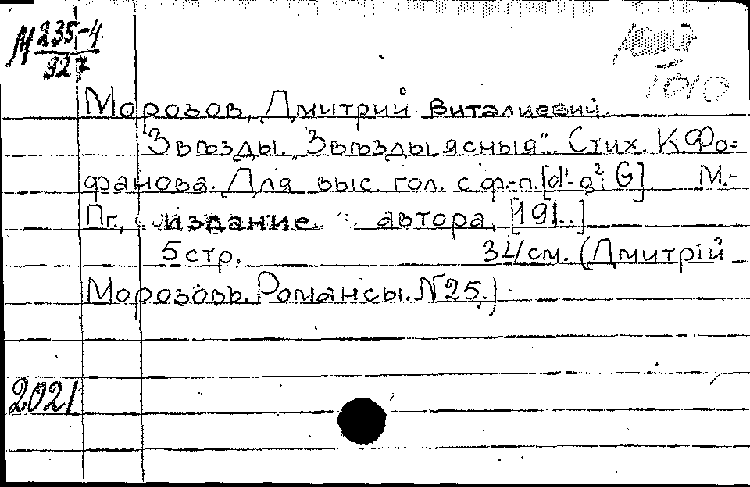 М 235-4
927
Морозов, Дмитрий Виталиевич.
"Звѣзды. Звѣзды ясныя". Стих. К. Фо=
фанова. Для выс. гол. с ф.-п. [d¹-g²; G] М.-
Пг, издание автора, [191..]
5 стр. 34 см. (Дмитрій
Морозовъ. Романсы. №25.)
2021